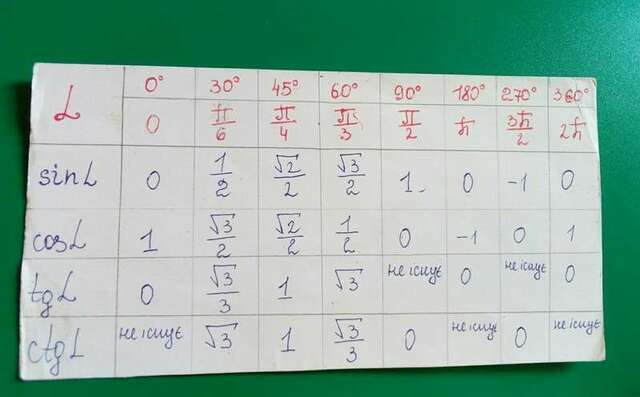 α 0° 30° 45° 60° 90° 180° 270° 360°
0 π/6 π/4 π/3 π/2 π 3π/2 2π
sin α 0 1/2 √2/2 √3/2 1 0 -1 0
cos α 1 √3/2 √2/2 1/2 0 -1 0 1
tg α 0 √3/3 1 √3 не існує 0 не існує 0
ctg α не існує √3 1 √3/3 0 не існує 0 не існує